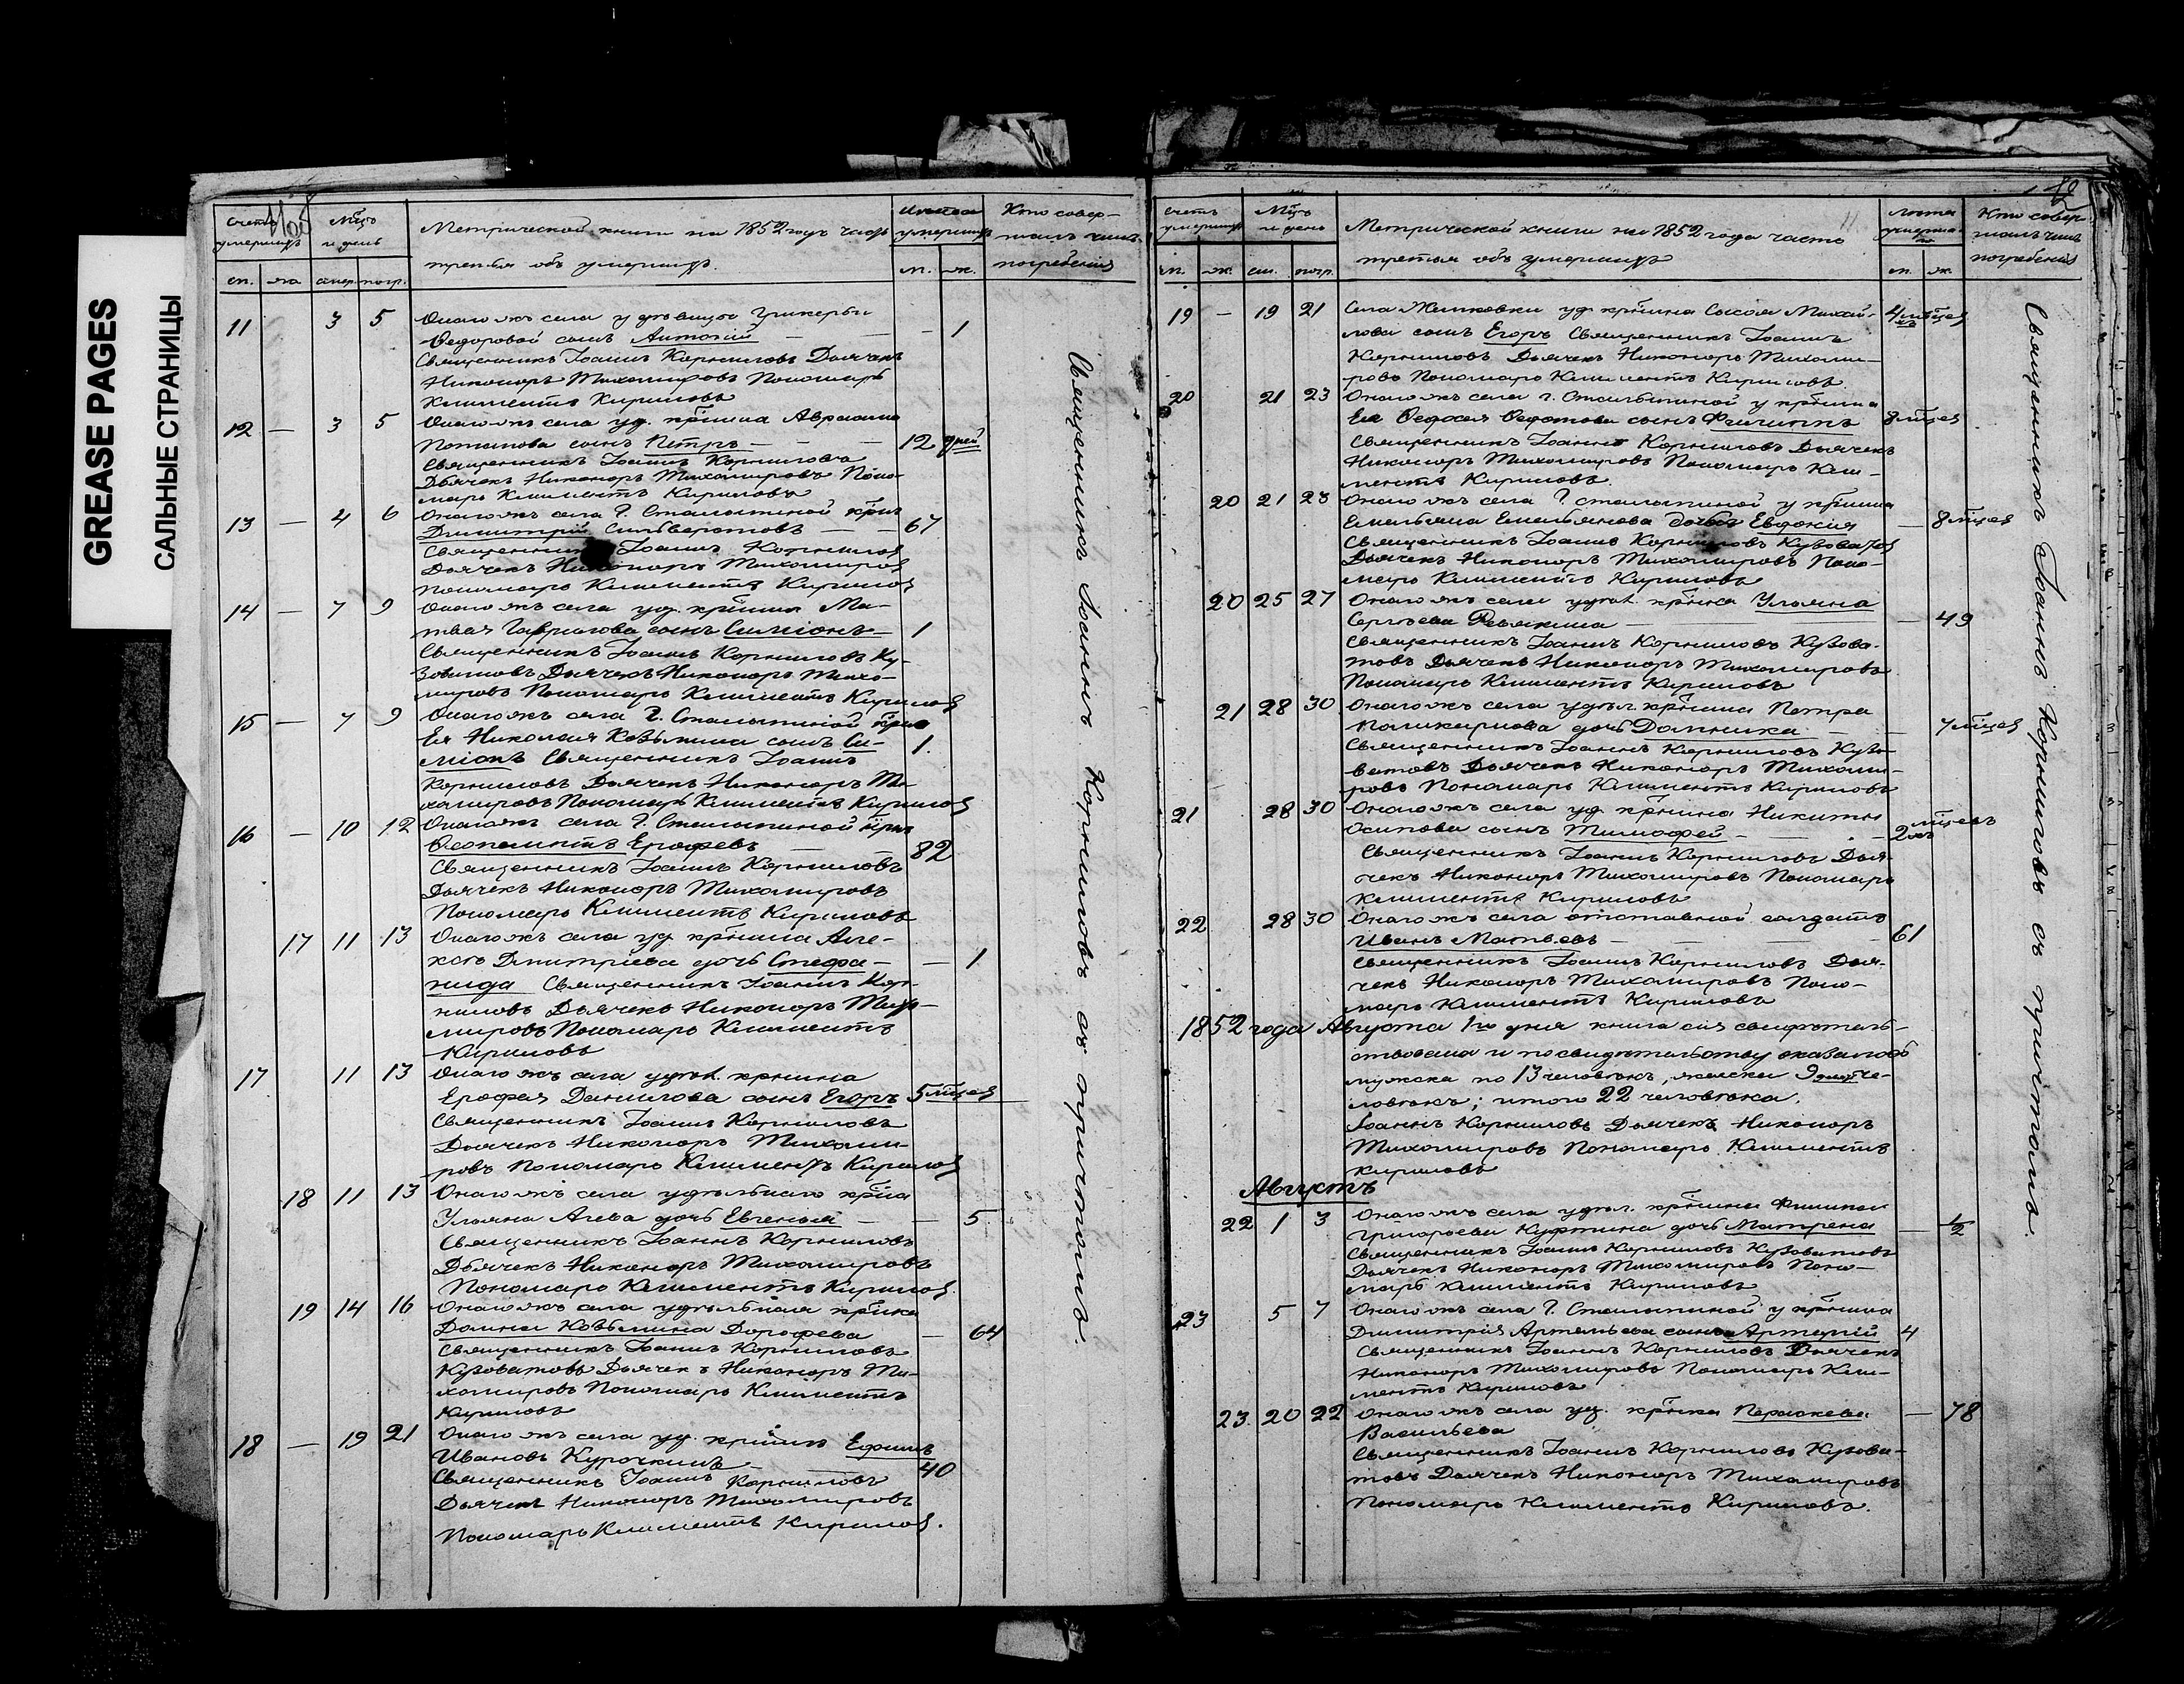 GREASE PAGES
САЛЬНЫЕ СТРАНИЦЫ
Счетъ умершихъ
Мцъ и день
Метрической книги на 1852 годъ часть
третья объ умершихъ.
умершихъ
Кто совер-
шалъ чинъ
погребенія
м. умер. погр. м. ж.
11 3 5 Онагожъ села у дѣвицы Гликеріи
Ѳедоровой сынъ Антоній — — 1
Священникъ Іоаннъ Корниловъ Дьячекъ
Никоноръ Тихомировъ Пономарь
Климентъ Кириловъ
12 — 3 5 Онагожъ села уд. крнина Авраама
Потапова сынъ Петръ — — — 12 дней
Священникъ Іоаннъ Корниловъ
Дьячекъ Никоноръ Тихомировъ Поно-
марь Климентъ Кириловъ
13 — 4 6 Онагожъ села Г. Столыпиной крнъ
Димитрій Сильверстовъ — 67
Священникъ Іоаннъ Корнилов
Дьячекъ Никоноръ Тихомиров
пономарь Климентъ Кирилов
14 — 7 9 Онагожъ села уд. крнина Ма-
твея Гаврилова сынъ Симіонъ — 1
Священникъ Іоаннъ Корниловъ Ку-
зоватовъ Дьячекъ Никоноръ Тихо-
мировъ Пономарь Климентъ Кирилов
15 — 7 9 Онагожъ села Г. Столыпиной крна
Ея Николая Козьмина сынъ Си- 1.
міонъ Священникъ Іоаннъ
Корниловъ Дьячекъ Никоноръ Ти-
хомировъ Пономарь Климентъ Кирилов
16 — 10 12 Онагожъ села Г. Столыпиной крнъ
Ѳеопемптъ Ерофеевъ — 82
Священникъ Іоаннъ Корниловъ
Дьячекъ Никоноръ Тихомировъ
Пономарь Климентъ Кириловъ
17 11 13 Онагожъ села уд. крнина Але-
ксѣя Дмитріева дочь Стефа- — — 1
нида Священникъ Іоаннъ Кор-
ниловъ Дьячекъ Никоноръ Тихо-
мировъ Пономарь Климентъ
Кириловъ
17 11 13 Онагожъ села удѣл. крнина
Ерофея Данилова сынъ Егоръ 5 мцев
Священникъ Іоаннъ Корниловъ
Дьячекъ Никоноръ Тихоми-
ровъ Пономарь Климентъ Кирилов
18 11 13 Онагожъ села удѣльнаго крна
Ульяна Агева дочь Евгенья — — 5.
Священникъ Іоаннъ Корниловъ
Дьячекъ Никоноръ Тихомировъ
Пономарь Климентъ Кирилов.
19 14 16 Онагожъ села удѣльная крнка
Домна Козьмина Дорофева — 64
Священникъ Іоаннъ Корниловъ
Кузоватовъ Дьячекъ Никоноръ Ти-
хомировъ Пономарь Климентъ
Кириловъ
18 — 19 21 Онагожъ села уд. крнинъ Ефимъ
Ивановъ Курочкинъ — 40
Священникъ Іоаннъ Корниловъ
Дьячекъ Никоноръ Тихомировъ
Пономарь Климентъ Кирилов.
Священникъ Іоаннъ Корниловъ съ причтомъ.
счетъ умершихъ
Мцъ и день
Метрической книги на 1852 года часть
третья объ умершихъ
лѣта
Кто совер-
шалъ чинъ
погребенія
м. ж. см. погр. м. ж.
19 — 19 21 Села Житковки уд. крнина Сысоя Михай-
лова сынъ Егоръ Священникъ Іоаннъ 4 мцев
Корниловъ Дьячекъ Никоноръ Тихоми-
ровъ Пономарь Климентъ Кириловъ.
20 21 23 Онагожъ села г. Столыпиной у крнина
Ея Ѳедосея Ѳедотова сынъ Филиппъ 8 мцев
Священникъ Іоаннъ Корниловъ Дьячекъ
Никоноръ Тихомировъ Пономарь Кли-
ментъ Кириловъ.
20 21 23 Онагожъ села Г столыпиной у крнина
Емельяна Емельянова дочь Евдокія — 8 мцев
Священникъ Іоаннъ Корниловъ Кузоватов
Дьячекъ Никоноръ Тихомировъ Поно-
марь Климентъ Кириловъ
20 25 27 Онагожъ села удѣл. крнка Ульяна
Сергѣева — — 49
Священникъ Іоаннъ Корниловъ Кузова-
товъ Дьячекъ Никоноръ Тихомировъ
Пономарь Климентъ Кириловъ
21 28 30 Онагожъ села удѣл. крнина Петра
Поликарпова дочь Домника — — 7 мцев
Священникъ Іоаннъ Корниловъ Кузо-
ватовъ Дьячекъ Никоноръ Тихоми-
ровъ Пономарь Климентъ Кириловъ
21 28 30 Онагожъ села уд. крнина Никиты
Осипова сынъ Тимофей — — 2 мцевъ
Священникъ Іоаннъ Корниловъ Дья-
чекъ Никоноръ Тихомировъ Пономарь
Климентъ Кириловъ
22 28 30 Онагожъ села отставной солдатъ
Иванъ Матвѣевъ — — — 61
Священникъ Іоаннъ Корниловъ Дья-
чекъ Никоноръ Тихомировъ Поно-
марь Климентъ Кириловъ
1852 года Августа 1го дня книга сія свидѣтель-
ствована и по свидѣтельству оказалось
мужска по 13 человѣкъ, женска 9 че-
ловѣкъ; итого 22 человѣка.
Іоаннъ Корниловъ Дьячекъ Никоноръ
Тихомировъ Пономарь Климентъ
Кириловъ
Августъ
22 1 3 Онагожъ села удѣл. крнина Филипа
Григорьева Куфтина дочь Матрена — 1/2
Священникъ Іоаннъ Корниловъ Кузоватовъ
Дьячекъ Никоноръ Тихомировъ Поно-
марь Климентъ Кириловъ
23 5 7 Онагожъ села Г. Столыпиной у крнина
Димитрія Артемьева сынъ Артемій 4
Священникъ Іоаннъ Корниловъ Дьячекъ
Никоноръ Тихомировъ Пономарь Кли-
ментъ Кириловъ
23. 20 22 Онагожъ села уд. крнка Параскева — 78
Васильева
Священникъ Іоаннъ Корниловъ Кузова-
товъ Дьячекъ Никоноръ Тихомировъ
Пономарь Климентъ Кириловъ.
Священникъ Іоаннъ Корниловъ съ причтомъ.